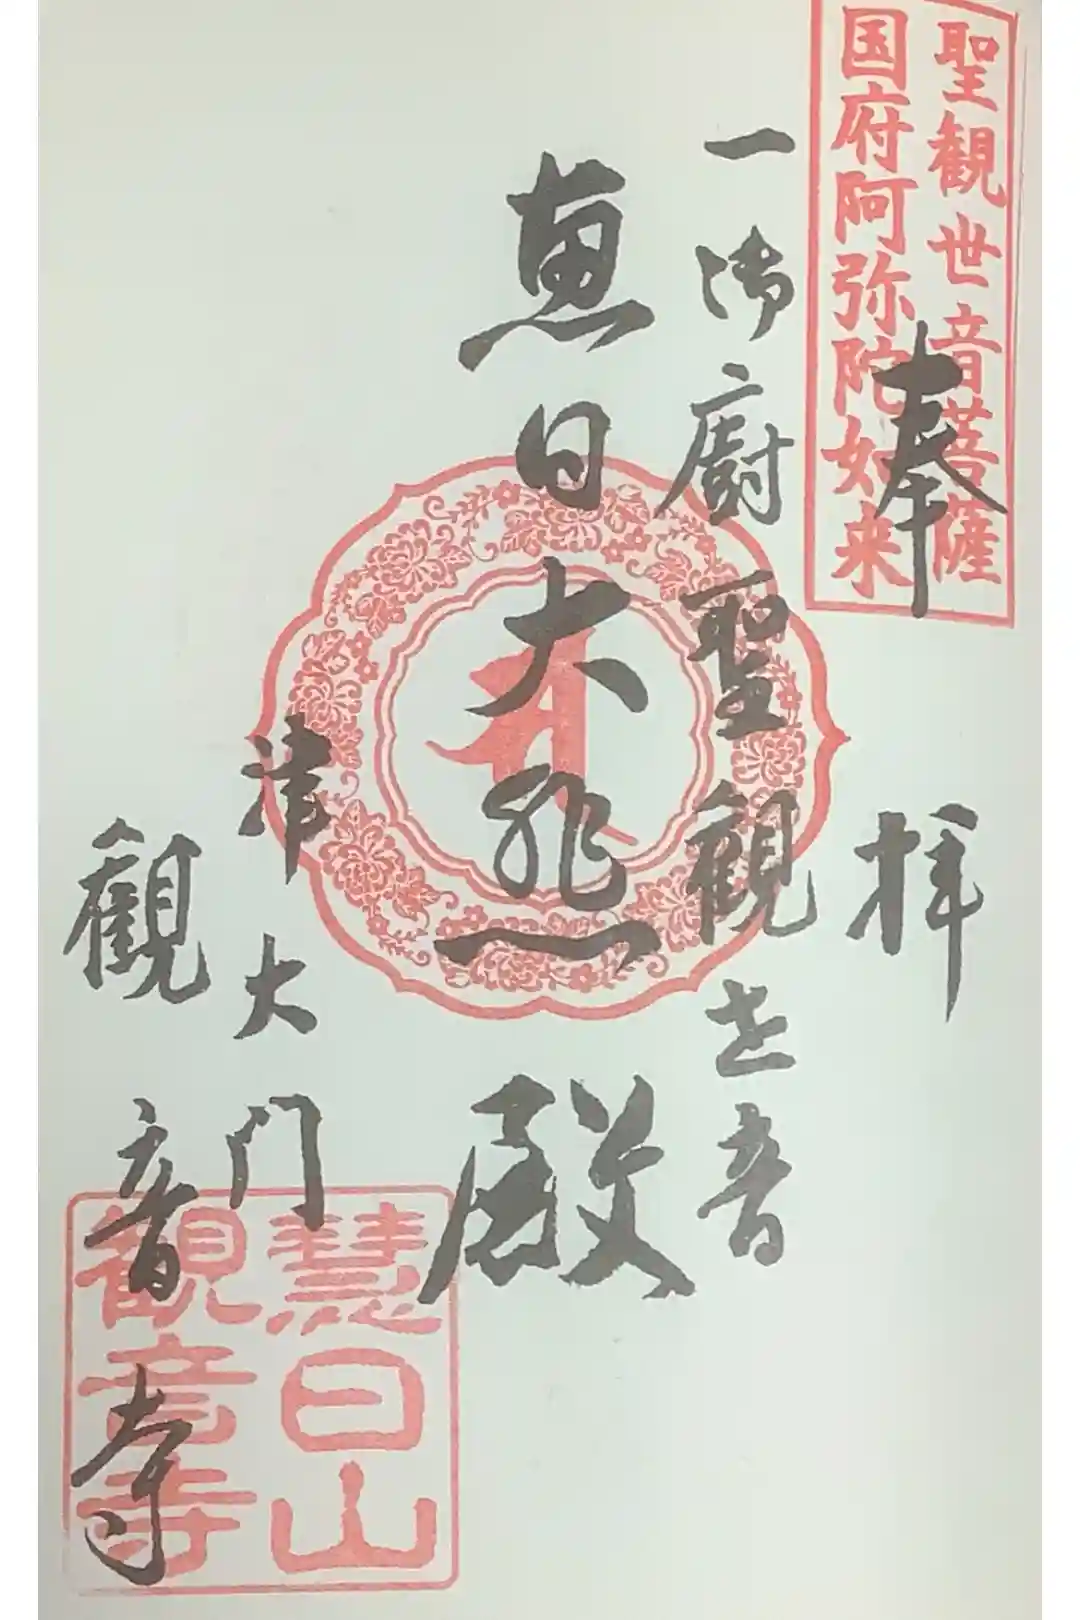 聖観世音菩薩
国府阿弥陀如来
奉拝
一御廚聖觀世音
恵日大悲殿
津大门
觀音寺
慧日山
観音寺